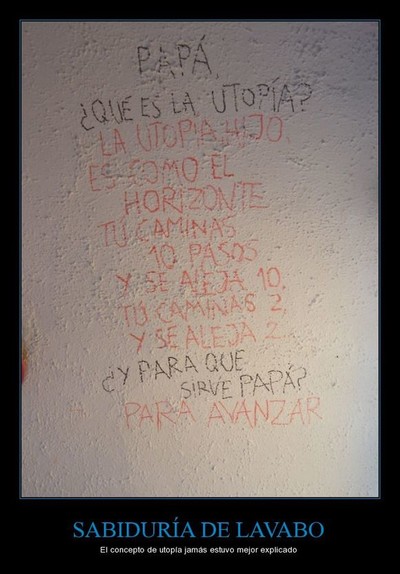 PAPÁ,
¿QUÉ ES LA UTOPÍA?
LA UTOPIA, HIJO,
ES COMO EL
HORIZONTE
TÚ CAMINAS
10 PASOS
Y SE ALEJA 10,
TÚ CAMINAS 2,
Y SE ALEJA 2.
¿Y PARA QUE
SIRVE PAPÁ?
PARA AVANZAR
SABIDURÍA DE LAVABO
El concepto de utopía jamás estuvo mejor explicado